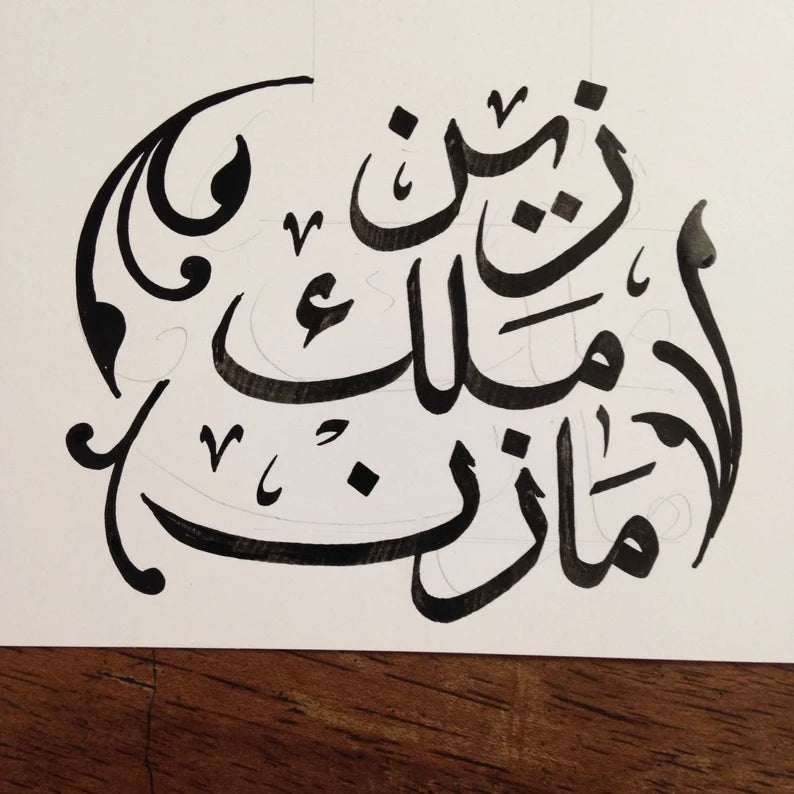 زين
مَلك
مَازن